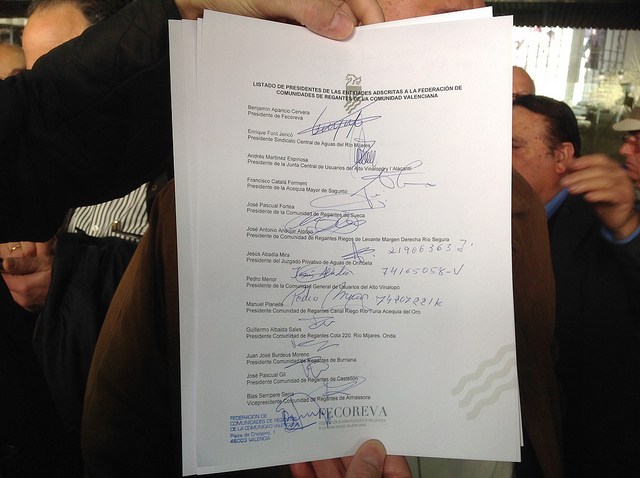 LISTADO DE PRESIDENTES DE LAS ENTIDADES ADSCRITAS A LA FEDERACIÓN DE
COMUNIDADES DE REGANTES DE LA COMUNIDAD VALENCIANA
Benjamín Aparicio Cervera
Presidente de Fecoreva
Enrique Font Jericó
Presidente Sindicato Central de Aguas del Río Mijares
Andrés Martínez Espinosa
Presidente de la Junta Central de Usuarios del Alto Vinalopó y l'Alacantí
Francisco Catalá Forment
Presidente de la Acequia Mayor de Sagunto
José Pascual Fortea
Presidente de la Comunidad de Regantes de Sueca
José Antonio Andújar Alonso
Presidente de Comunidad de Regantes Riegos de Levante Margen Derecha Río Segura
21906363 J.
Jesús Abadía Mira
Presidente del Juzgado Privativo de Aguas de Orihuela
74165058-V
Pedro Menor
Presidente de la Comunidad General de Usuarios del Alto Vinalopó
Pedro 74207221K
Manuel Planells
Presidente Comunidad de Regantes Canal Riego Río Turia Acequia del Oro
Guillermo Albalta Sales
Presidente Comunidad de Regantes Cota 220. Río Mijares. Onda
Juan José Burdeus Moreno
Presidente Comunidad de Regantes de Burriana
José Pascual Gil
Presidente Comunidad de Regantes de Castellón
Blas Sempere Serra
Vicepresidente Comunidad de Regantes de Almassora
FECOREVA
FEDERACION DE
COMUNIDADES DE REGANTES
DE LA COMUNIDAD VALENCIANA
Plaza de 1
46003 VALENCIA